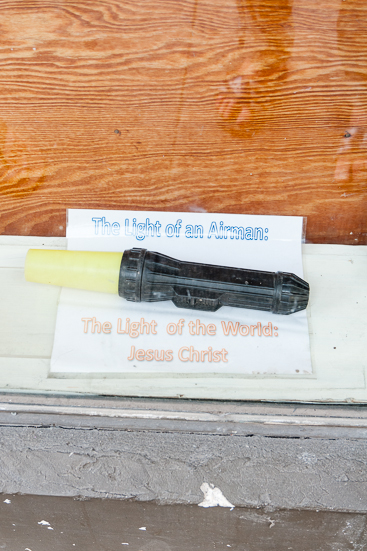 The Light of an Airman:
The Light of the World:
Jesus Christ